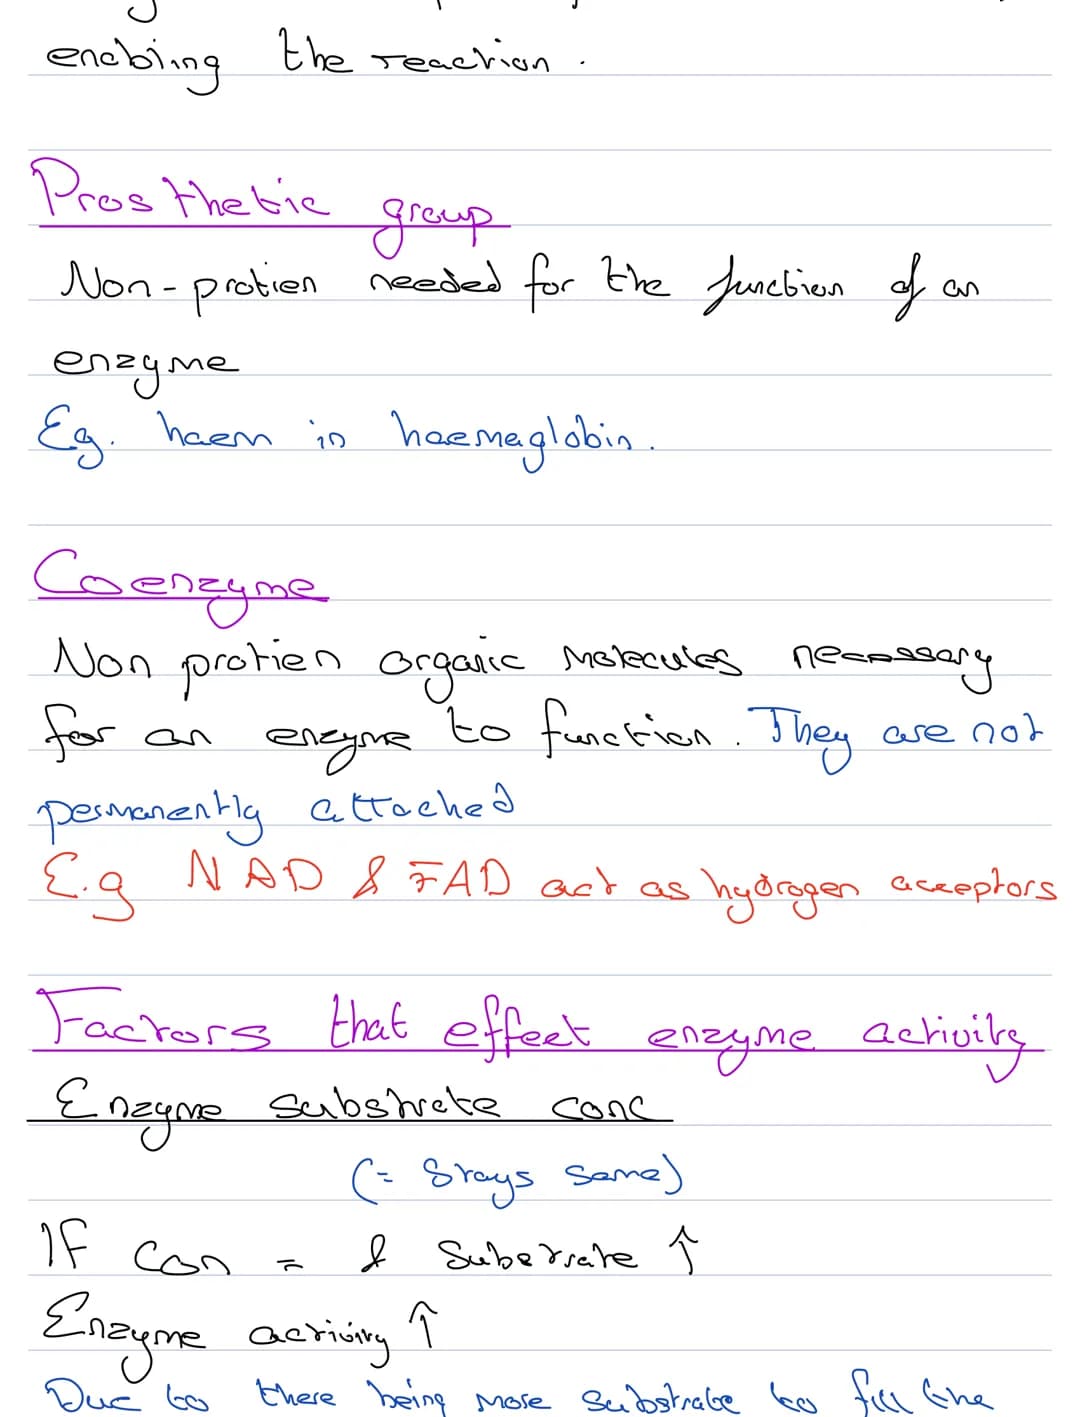 enabling the reaction.
Prosthetic group
Non-protien needed for the function of an
enzyme
Eg. haem in haemaglobin.
Coenzyme
Non protien organic molecules necessary
for an enzyme to function. They are not
permanently attached
E.g NAD & FAD act as hydrogen acceptors
Factors that effect enzyme activity
Enzyme substrate conc
(= Stays same)
If Con = & Substrate ↑
Enzyme activity ↑
Due to there being more substrate to fill the